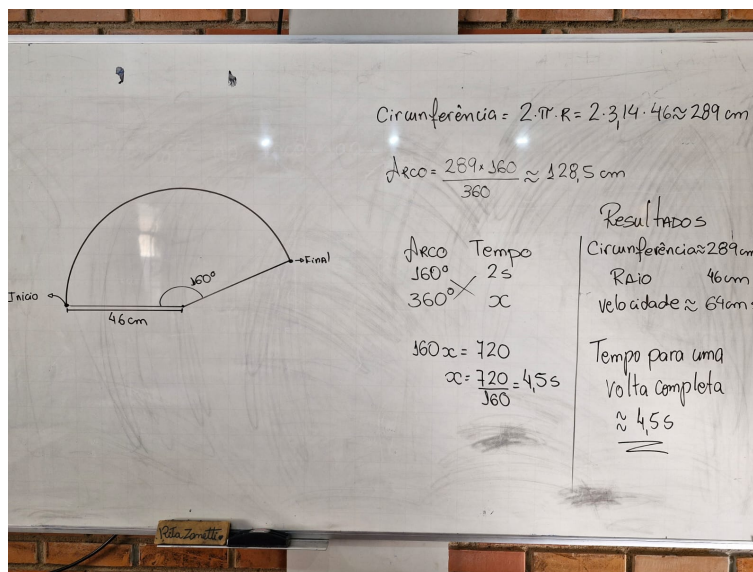 Circunferência = 2.π.R = 2.3,14.46 ≈ 289 cm
Arco = 289 × 160 / 360 ≈ 128,5 cm
Início
46cm
160°
Final
Arco Tempo
160° 2s
360° x
160x = 720
x = 720/160 = 4,5s
Resultados
Circunferência ≈ 289cm
Raio 46cm
velocidade ≈ 64cm
Tempo para uma
volta completa
≈ 4,5s
Rita Zanette